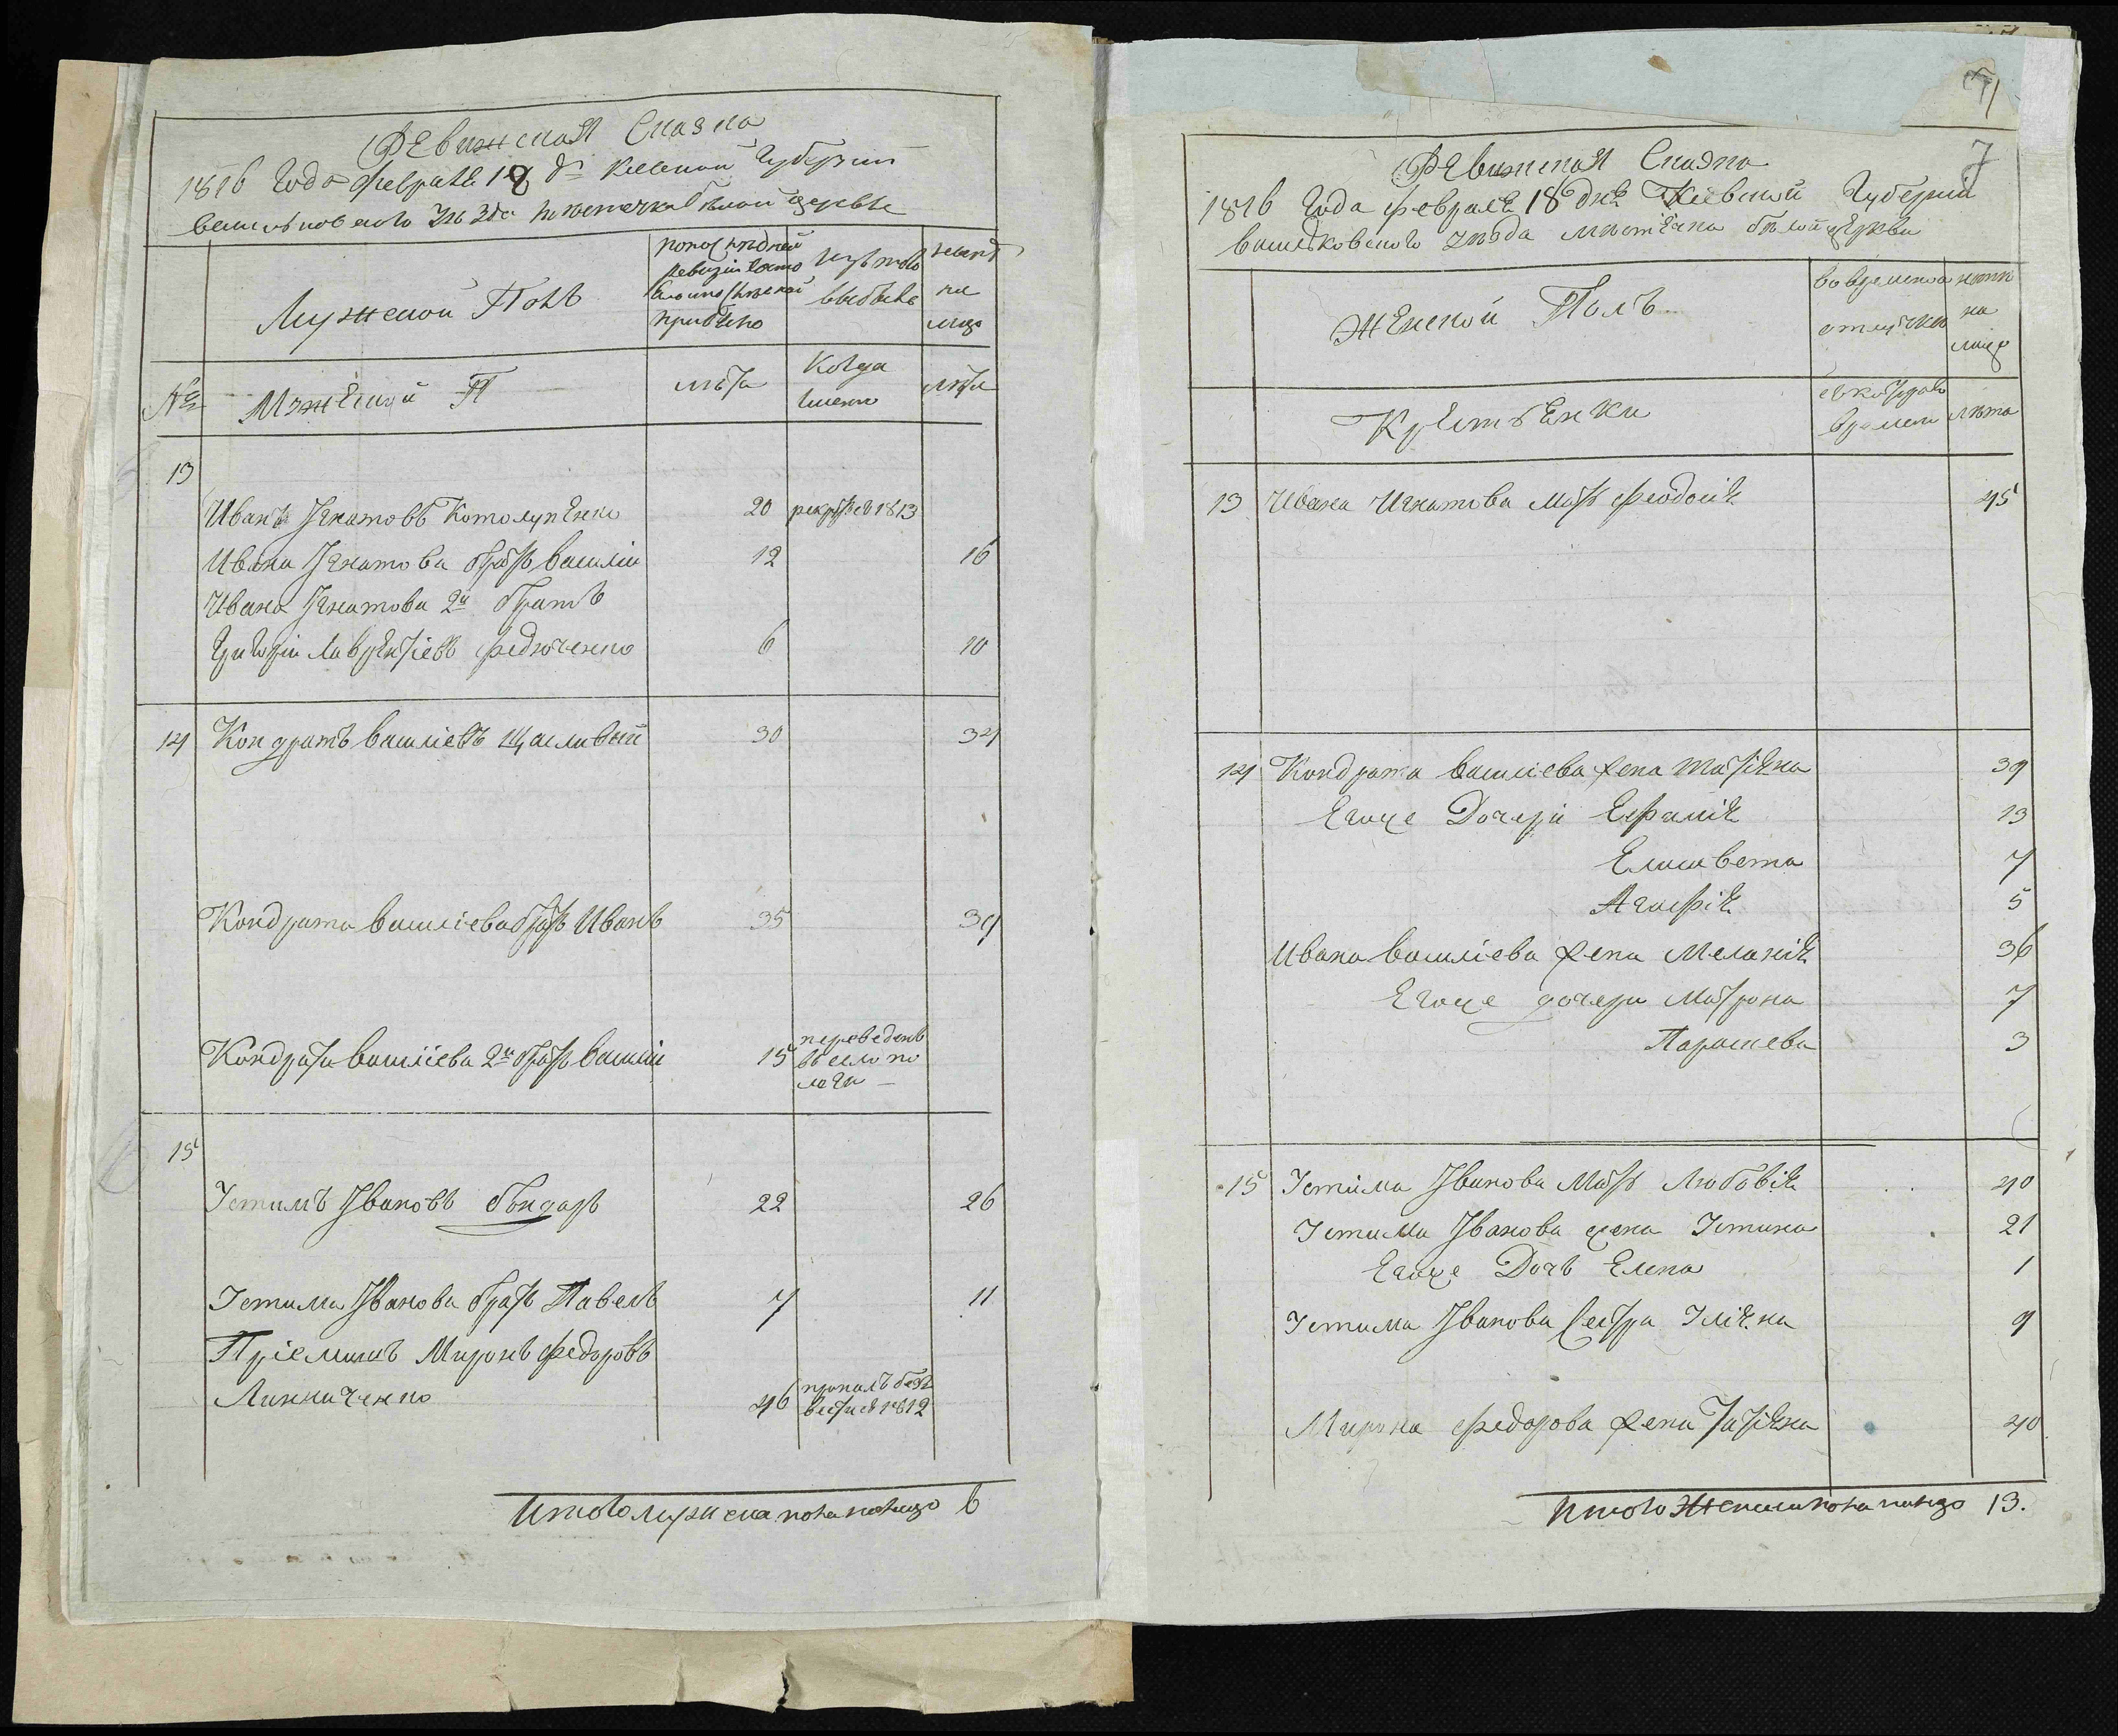 Ревижская Сказка
1816 Года Февраля 18 д. Киевской Губернии
василковского уезда местечка белой церкве
Мужеской Полъ
попоследней
ревизии
состояло
и после оной
прибыло
изъ того
выбыло
ныне
на
лицо
№
Мужеской П
лѣта
Когда
именно
лѣта
13
Иванъ Игнатовъ Котолупенко 20 рекрутъ в 1813
Ивана Игнатова братъ василии 12 16
Ивана Игнатова 2й братъ
Григории Лаврентиевъ Федюченко 6 10
14 Кондратъ василиевъ Щасливый 30 34
Кондрата василиева братъ Иванъ 35 39
Кондрата василиева 2й братъ василии 15 переведенъ
въ село по
логи
15
Устимъ Ивановъ бондарь 22 26
Устима Иванова братъ Павелъ 7 11
Приемышъ Миронъ Федоровъ
Линниченко 46 пропалъ безъ
вести в 1812
Итого мужеска пола налицо 6
7
Ревижская Сказка
1816 Года Февраля 18 дня Киевской Губернии
василковского уезда местечка белой церкви
Женской Полъ
во временной
отлучке
ныне
на
лицо
Крестьенки
съ которого
времени
лѣта
13 Ивана Игнатова мать Феодосия 45
14 Кондрата василиева жена Татияна 39
Егоже Дочери Ефимия 13
Елисавета 7
Агафия 5
Ивана василиева жена Мелания 36
Егоже дочери Матрона 7
Парасиева 3
15 Устима Иванова Мать Любовия 40
Устима Иванова жена Устина 21
Егоже Дочь Елена 1
Устима Иванова Сестра Улияна 9
Мирона Федорова жена Татияна 40
Итого Женска пола налицо 13.